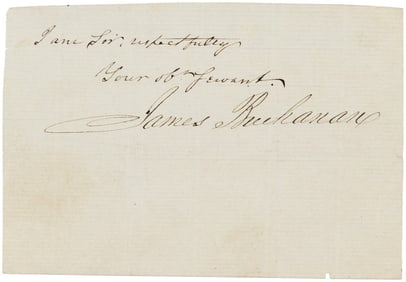 I am Sir, respectfully
Your obt Servant.
James Buchanan